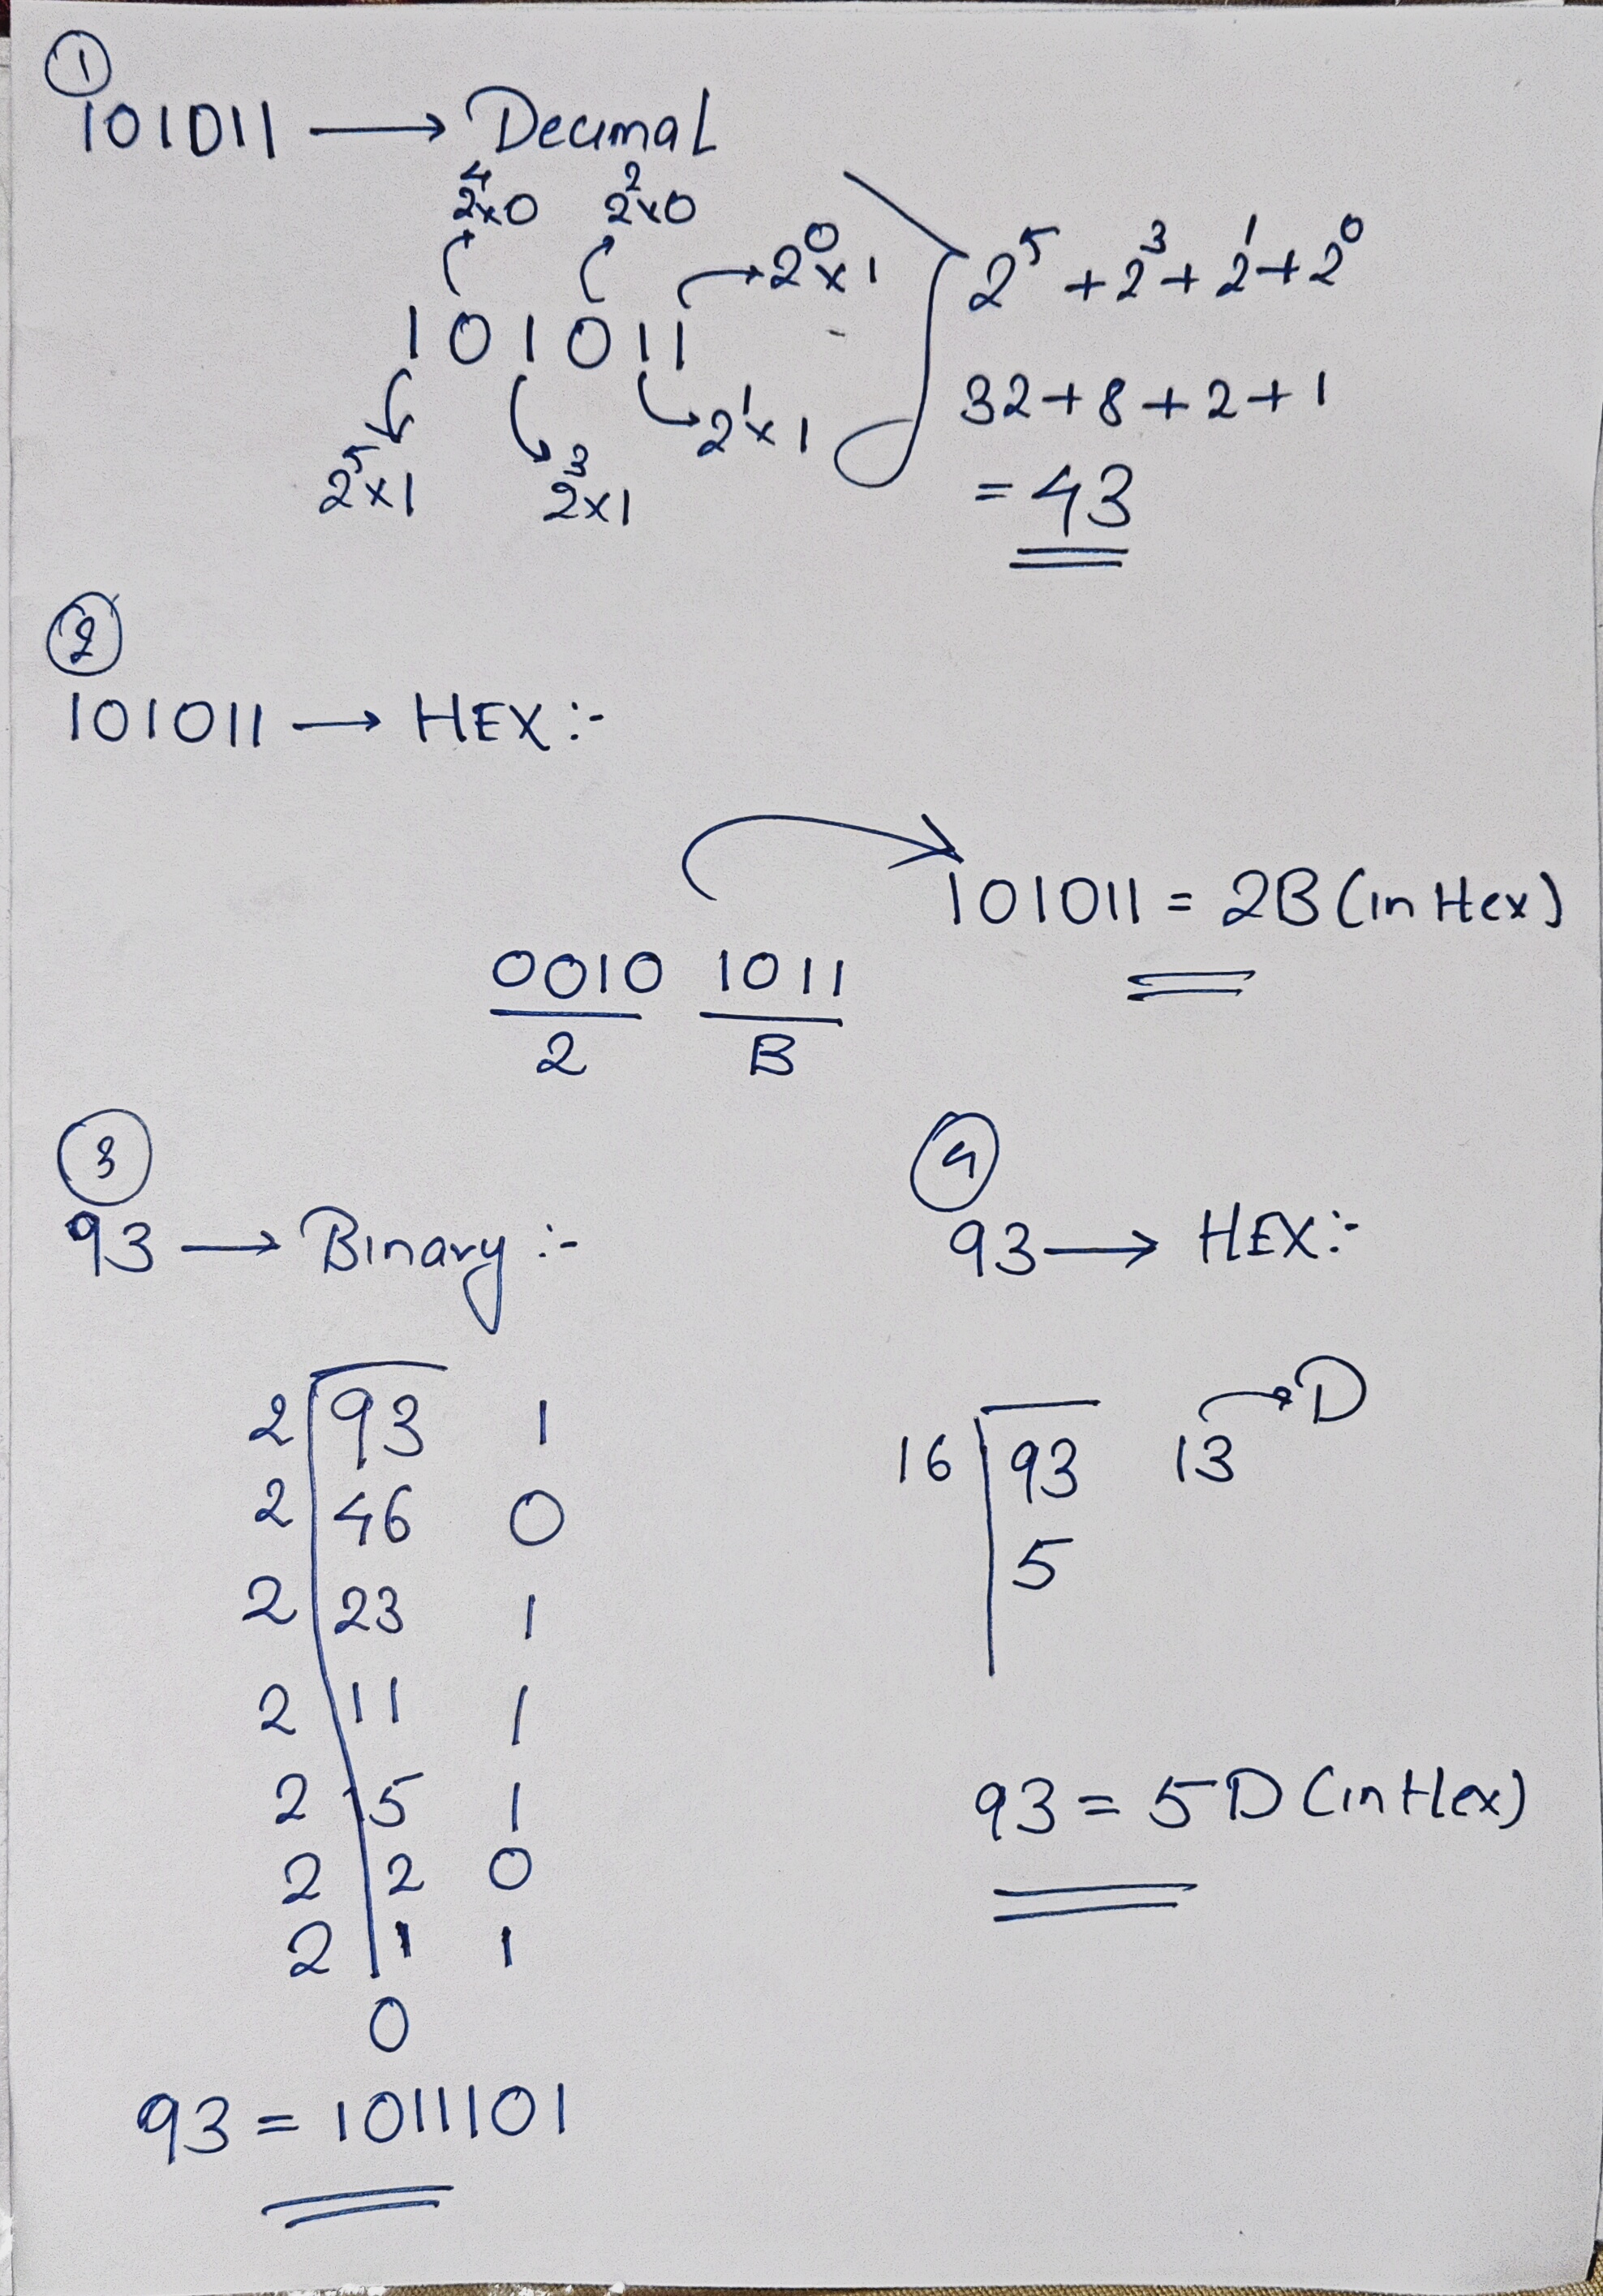 ①
101011 → Decimal
2⁴×0 2²×0
2⁰×1
101011
2¹×1
2⁵×1 2³×1
2⁵ + 2³ + 2¹ + 2⁰
32 + 8 + 2 + 1
= 43
②
101011 → HEX :-
101011 = 2B (in Hex)
0010 1011
2 B
③
93 → Binary :-
2 93 1
2 46 0
2 23 1
2 11 1
2 5 1
2 2 0
2 1 1
0
93 = 1011101
④
93 → HEX :-
16 93 13 → D
5
93 = 5D (in Hex)